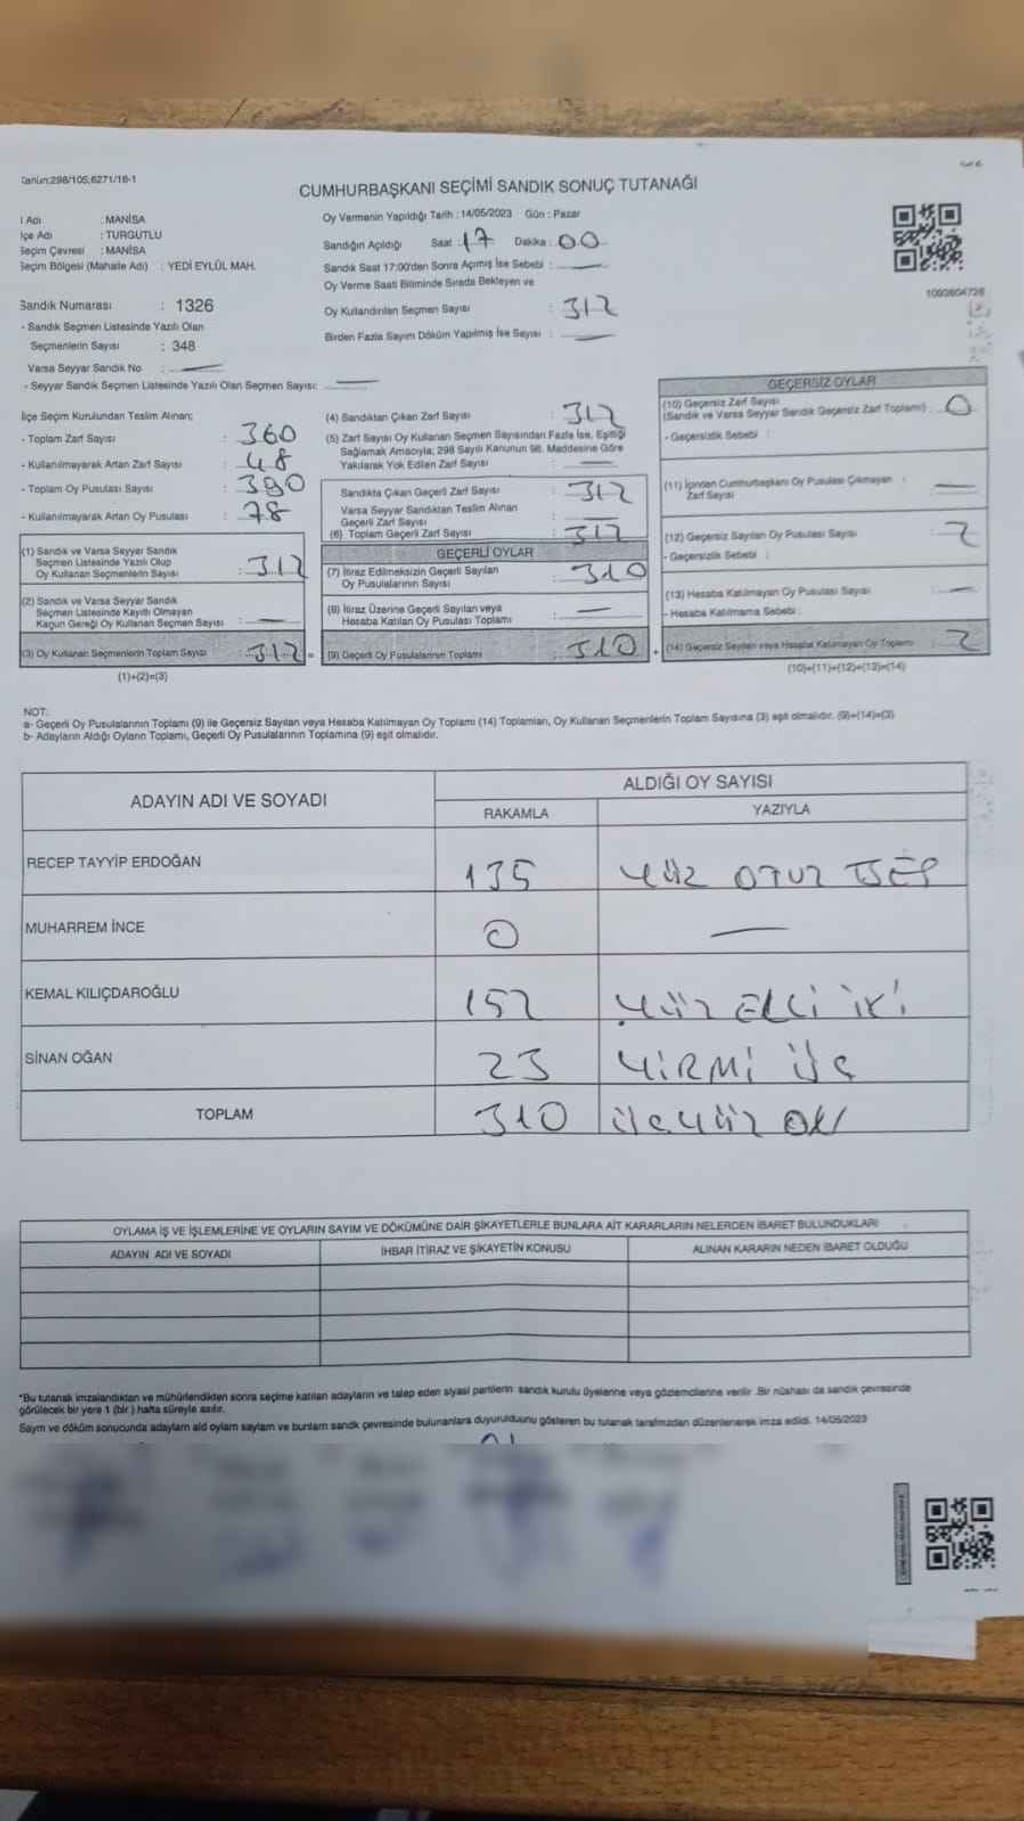 Kanun:298/105,6271/16-1
CUMHURBAŞKANI SEÇİMİ SANDIK SONUÇ TUTANAĞI
İl Adı : MANİSA
İlçe Adı : TURGUTLU
Seçim Çevresi : MANİSA
Seçim Bölgesi (Mahalle Adı) : YEDİ EYLÜL MAH.
Oy Vermenin Yapıldığı Tarih : 14/05/2023 Gün : Pazar
Sandığın Açıldığı Saat : 17 Dakika : 00
Sandık Saat 17:00'den Sonra Açmış İse Sebebi : —
Oy Verme Saati Bitiminde Sırada Bekleyen ve
Oy Kullandırılan Seçmen Sayısı : 312
Birden Fazla Sayım Döküm Yapılmış İse Sayısı : —
Sandık Numarası : 1326
- Sandık Seçmen Listesinde Yazılı Olan
Seçmenlerin Sayısı : 348
Varsa Seyyar Sandık No : —
- Seyyar Sandık Seçmen Listesinde Yazılı Olan Seçmen Sayısı: —
İlçe Seçim Kurulundan Teslim Alınan;
- Toplam Zarf Sayısı : 360
- Kullanılmayarak Artan Zarf Sayısı : 48
- Toplam Oy Pusulası Sayısı : 390
- Kullanılmayarak Artan Oy Pusulası : 78
(1) Sandık ve Varsa Seyyar Sandık
Seçmen Listesinde Yazılı Olup
Oy Kullanan Seçmenlerin Sayısı : 312
(2) Sandık ve Varsa Seyyar Sandık
Seçmen Listesinde Kayıtlı Olmayan
Kanun Gereği Oy Kullanan Seçmen Sayısı : —
(3) Oy Kullanan Seçmenlerin Toplam Sayısı : 312
(1)+(2)=(3)
(4) Sandıktan Çıkan Zarf Sayısı : 312
(5) Zarf Sayısı Oy Kullanan Seçmen Sayısından Fazla İse, Eşitliği
Sağlamak Amacıyla; 298 Sayılı Kanunun 98. Maddesine Göre
Yakılarak Yok Edilen Zarf Sayısı : —
Sandıkta Çıkan Geçerli Zarf Sayısı : 312
Varsa Seyyar Sandıktan Teslim Alınan
Geçerli Zarf Sayısı : —
(6) Toplam Geçerli Zarf Sayısı : 312
GEÇERLİ OYLAR
(7) İtiraz Edilmeksizin Geçerli Sayılan
Oy Pusulalarının Sayısı : 310
(8) İtiraz Üzerine Geçerli Sayılan veya
Hesaba Katılan Oy Pusulası Toplamı : —
= (9) Geçerli Oy Pusulalarının Toplamı : 310
GEÇERSİZ OYLAR
(10) Geçersiz Zarf Sayısı
(Sandık ve Varsa Seyyar Sandık Geçersiz Zarf Toplamı) : 0
- Geçersizlik Sebebi :
(11) İçinden Cumhurbaşkanı Oy Pusulası Çıkmayan :
Zarf Sayısı —
(12) Geçersiz Sayılan Oy Pusulası Sayısı : 2
- Geçersizlik Sebebi :
(13) Hesaba Katılmayan Oy Pusulası Sayısı : —
- Hesaba Katılmama Sebebi :
+ (14) Geçersiz Sayılan veya Hesaba Katılmayan Oy Toplamı : 2
(10)+(11)+(12)+(13)=(14)
NOT:
a- Geçerli Oy Pusulalarının Toplamı (9) ile Geçersiz Sayılan veya Hesaba Katılmayan Oy Toplamı (14) Toplamları, Oy Kullanan Seçmenlerin Toplam Sayısına (3) eşit olmalıdır. (9)+(14)=(3)
b- Adayların Aldığı Oyların Toplamı, Geçerli Oy Pusulalarının Toplamına (9) eşit olmalıdır.
ADAYIN ADI VE SOYADI ALDIĞI OY SAYISI
RAKAMLA YAZIYLA
RECEP TAYYİP ERDOĞAN 135 YÜZ OTUZ BEŞ
MUHARREM İNCE 0 —
KEMAL KILIÇDAROĞLU 152 YÜZ ELLİ İKİ
SİNAN OĞAN 23 YİRMİ ÜÇ
TOPLAM 310 ÜÇYÜZ ON
OYLAMA İŞ VE İŞLEMLERİNE VE OYLARIN SAYIM VE DÖKÜMÜNE DAİR ŞİKAYETLERLE BUNLARA AİT KARARLARIN NELERDEN İBARET BULUNDUKLARI
ADAYIN ADI VE SOYADI İHBAR İTİRAZ VE ŞİKAYETİN KONUSU ALINAN KARARIN NEDEN İBARET OLDUĞU
*Bu tutanak imzalandıktan ve mühürlendikten sonra seçime katılan adayların ve talep eden siyasi partilerin sandık kurulu üyelerine veya gözlemcilerine verilir. Bir nüshası da sandık çevresinde
görülecek bir yere 1 (bir) hafta süreyle asılır.
Sayım ve döküm sonucunda adayların aldı oyların sayıları ve bunların sandık çevresinde bulunanlara duyurulduunu gösteren bu tutanak tarafımızdan düzenlenerek imza edildi. 14/05/2023